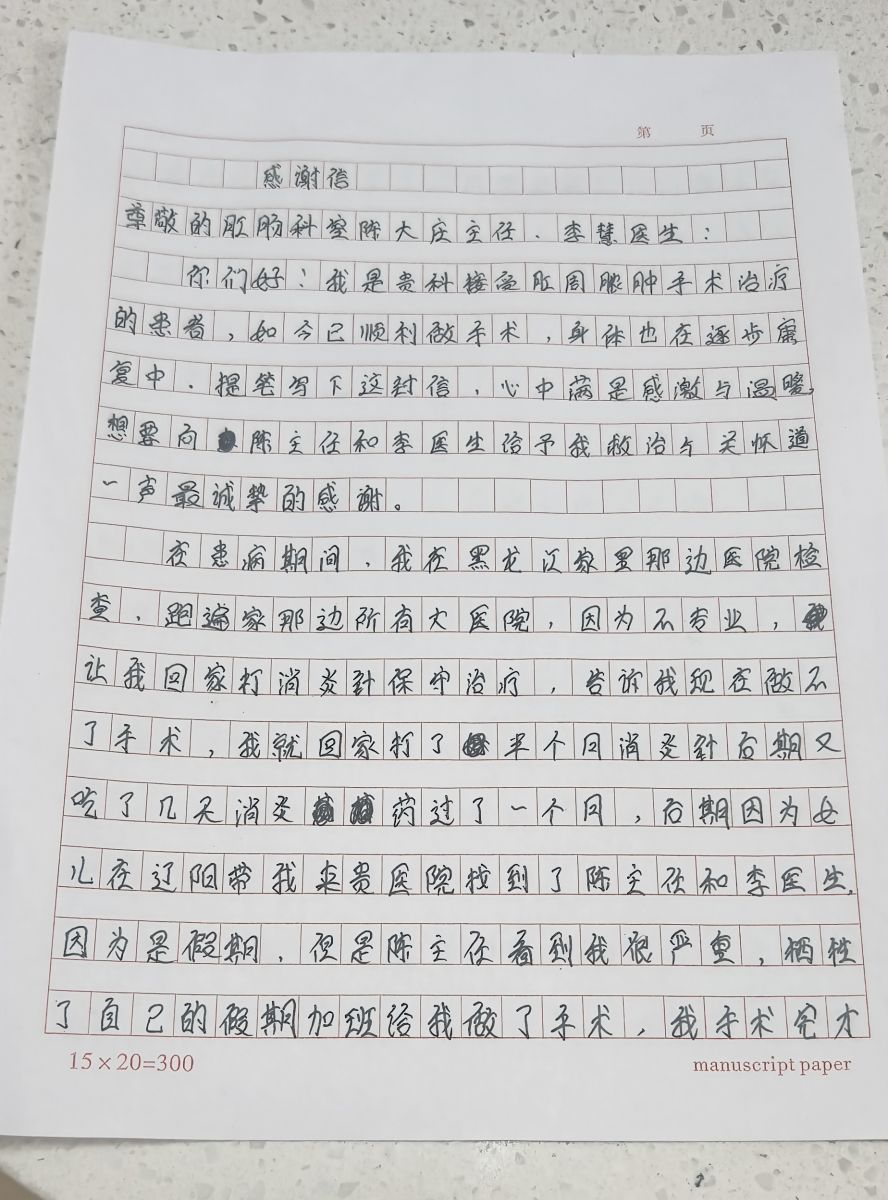 第 页
感谢信
尊敬的肛肠科室陈大庄主任、李慧医生：
你们好！我是贵科接受肛周脓肿手术治疗
的患者，如今已顺利做手术，身体也在逐步康
复中．提笔写下这封信，心中满是感激与温暖，
想要向陈主任和李医生给予我救治与关怀道
一声最诚挚的感谢。
在患病期间，我在黑龙江家里那边医院检
查．跑遍家那边所有大医院，因为不专业，
让我回家打消炎针保守治疗，告诉我现在做不
了手术，我就回家打了半个月消炎针后期又
吃了几天消炎药过了一个月，后期因为女
儿在辽阳带我来贵医院找到了陈主任和李医生，
因为是假期，但是陈主任看到我很严重，牺牲
了自己的假期加班给我做了手术，我手术完才
15×20=300
manuscript paper